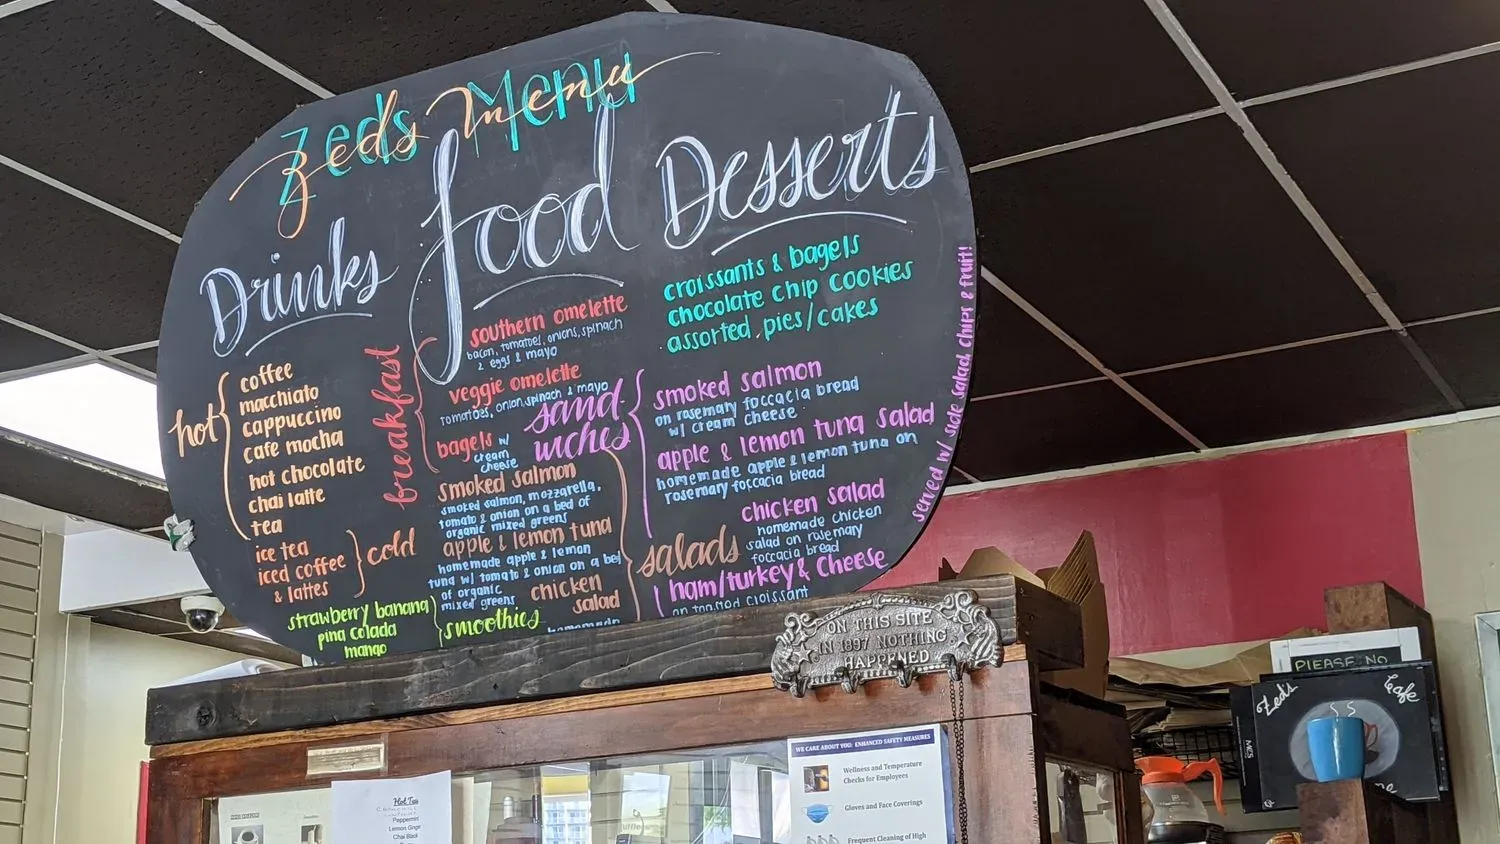 Zeds Menu
Zeds Menu
Drinks
hot
coffee
macchiato
cappuccino
cafe mocha
hot chocolate
chai latte
tea
cold
ice tea
iced coffee
& lattes
smoothies
strawberry banana
pina colada
mango
Food
breakfast
southern omelette
bacon, tomatoes, onions, spinach
2 eggs & mayo
veggie omelette
tomatoes, onion, spinach & mayo
bagels w/
cream
cheese
sand-
wiches
smoked salmon
on rosemary foccacia bread
w/ cream cheese
apple & lemon tuna salad
homemade apple & lemon tuna on
rosemary foccacia bread
chicken salad
homemade chicken
salad on rosemary
foccacia bread
ham/turkey & cheese
on toasted croissant
served w/ side salad, chips & fruit!
salads
smoked salmon
smoked salmon, mozzarella,
tomato & onion on a bed of
organic mixed greens
apple & lemon tuna
homemade apple & lemon
tuna w/ tomato & onion on a bed
of organic
mixed greens
chicken
salad
homemade
Desserts
croissants & bagels
chocolate chip cookies
assorted pies/cakes
ON THIS SITE
IN 1897 NOTHING
HAPPENED
WE CARE ABOUT YOU: ENHANCED SAFETY MEASURES
Wellness and Temperature
Checks for Employees
Gloves and Face Coverings
Frequent Cleaning of High
Hot Tea
Peppermint
Lemon Ginger
Chai Black
PLEASE NO
Zed's Cafe